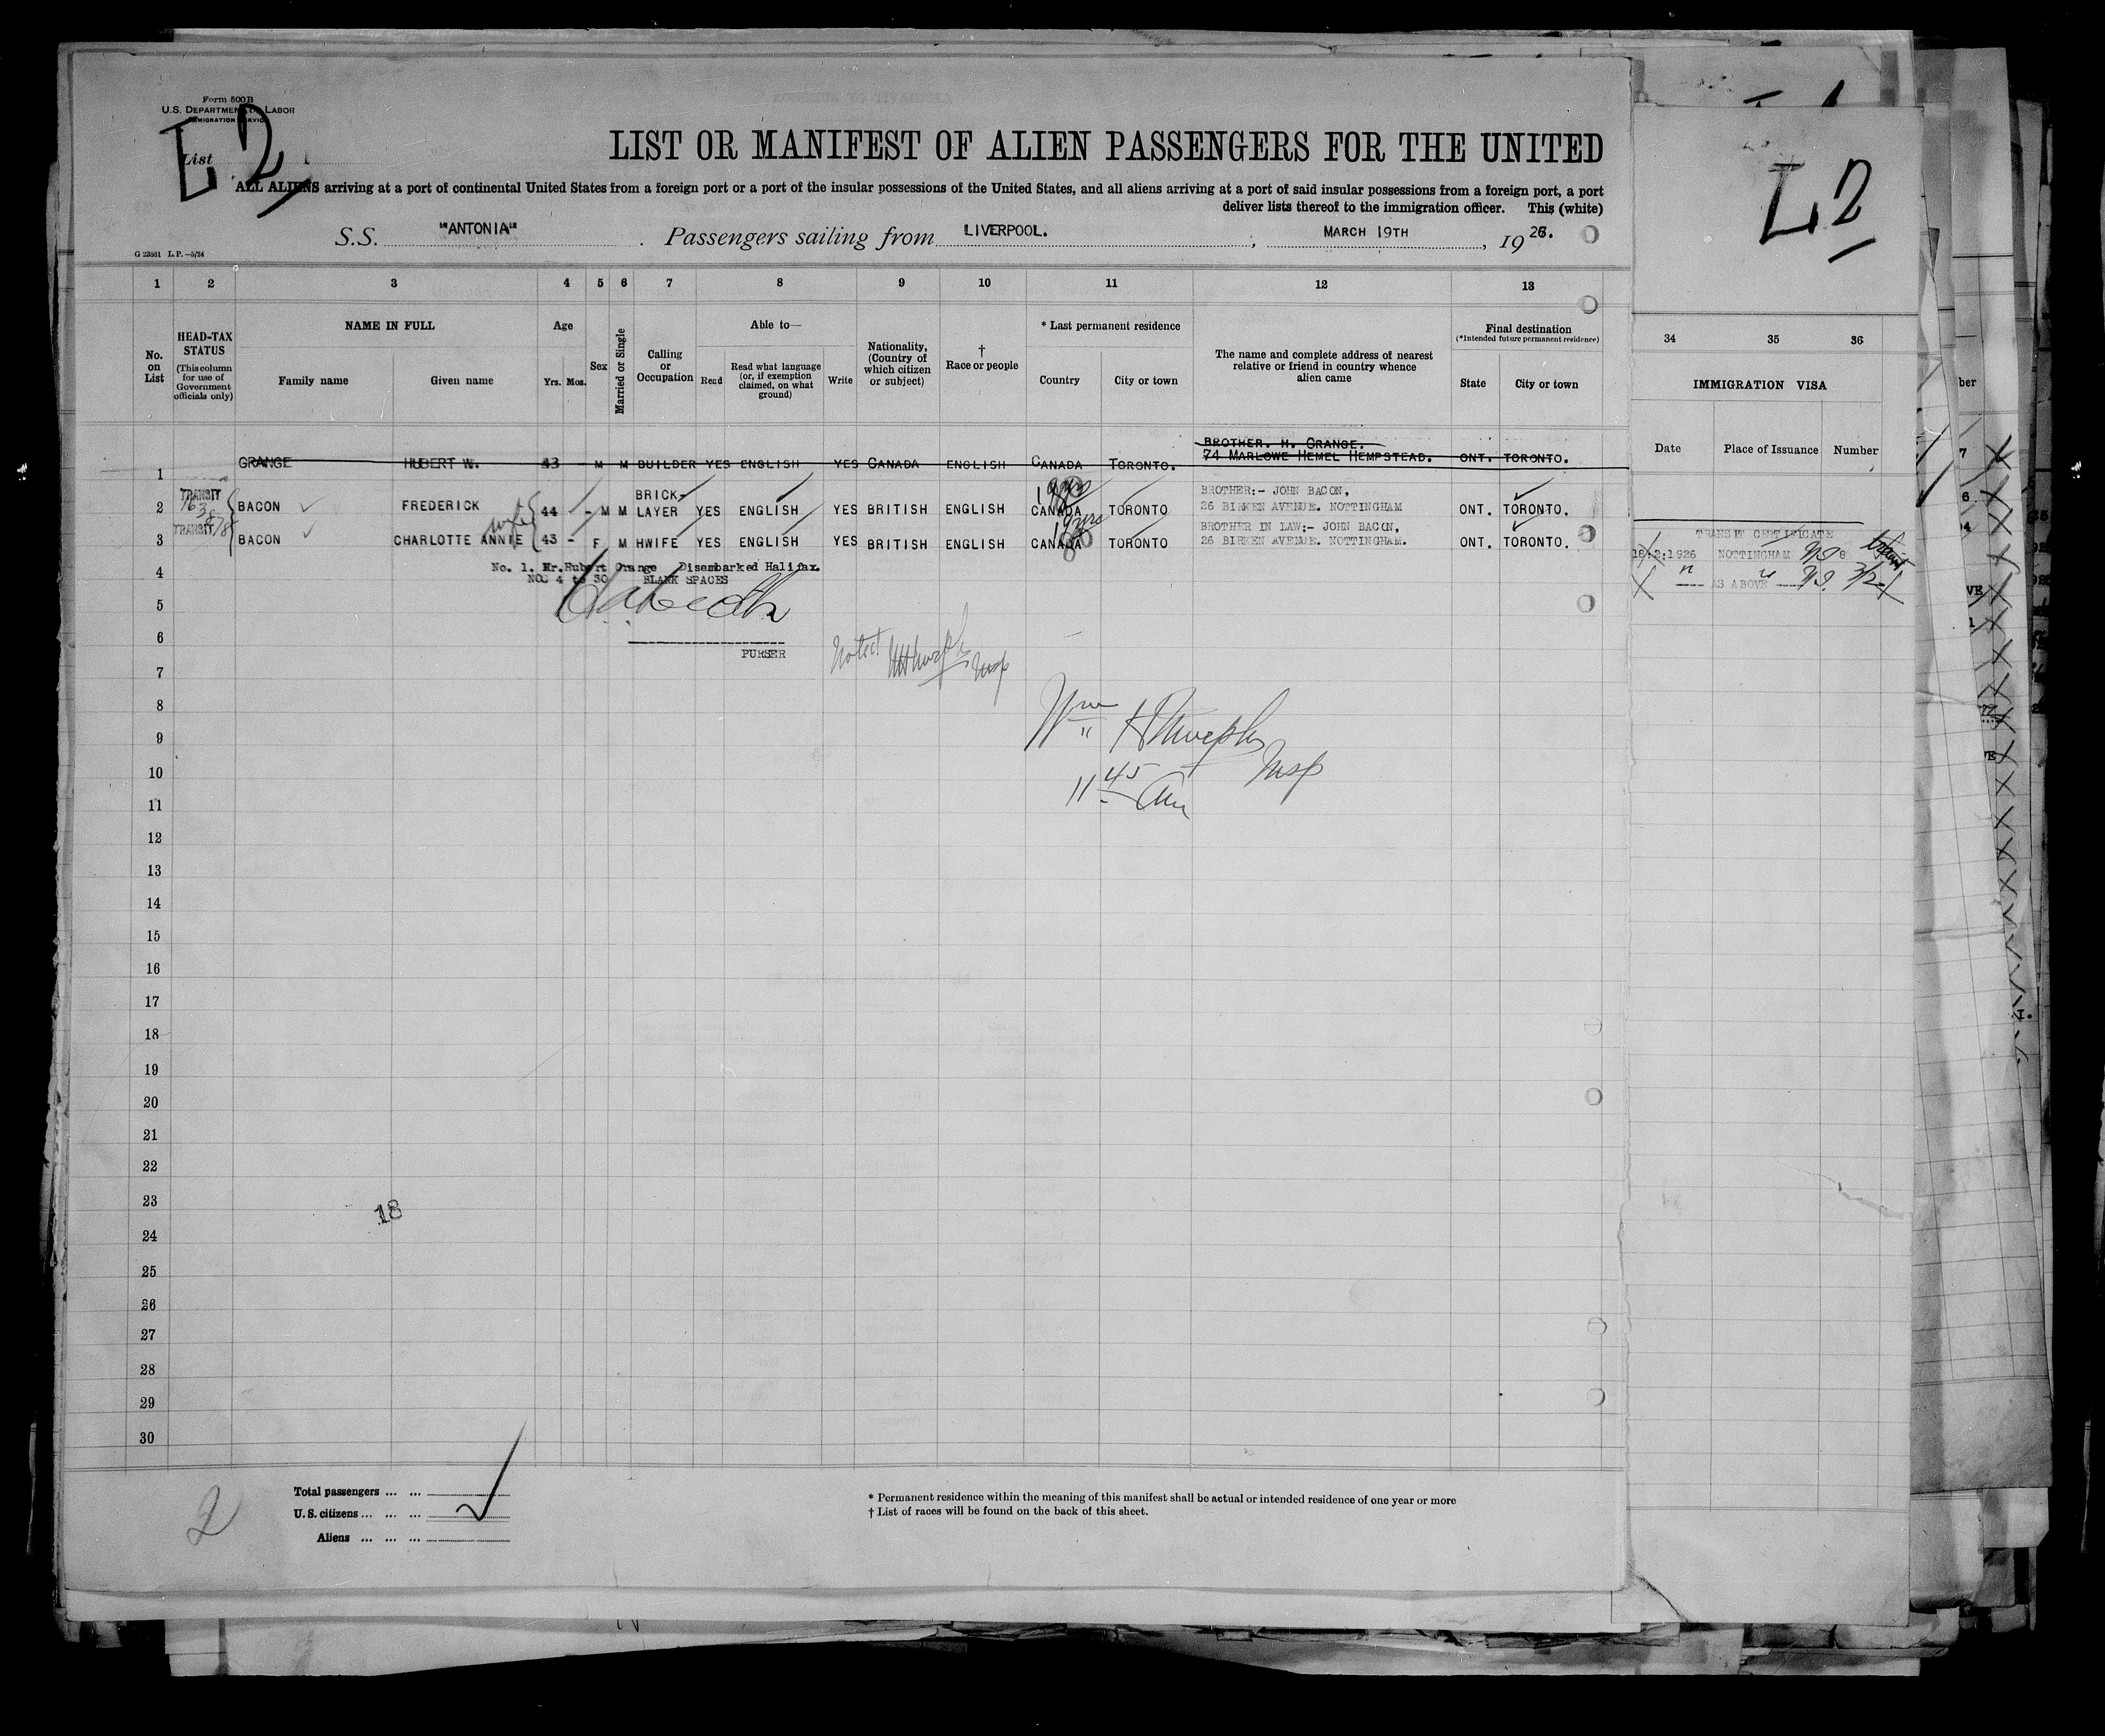 Form 500B
U.S. DEPARTMENT OF LABOR
IMMIGRATION SERVICE
List
L 2
LIST OR MANIFEST OF ALIEN PASSENGERS FOR THE UNITED
ALL ALIENS arriving at a port of continental United States from a foreign port or a port of the insular possessions of the United States, and all aliens arriving at a port of said insular possessions from a foreign port, a port
deliver lists thereof to the immigration officer. This (white)
S.S. "ANTONIA" . Passengers sailing from LIVERPOOL. , MARCH 19TH , 1926.
G 23881 L.P.—5/24
L2
1 2 3 4 5 6 7 8 9 10 11 12 13
34 35 36
No. on List
HEAD-TAX STATUS (This column for use of Government officials only)
NAME IN FULL
Family name
Given name
Age
Yrs. Mos.
Sex
Married or Single
Calling or Occupation
Able to—
Read
Read what language (or, if exemption claimed, on what ground)
Write
Nationality, (Country of which citizen or subject)
† Race or people
* Last permanent residence
Country
City or town
The name and complete address of nearest relative or friend in country whence alien came
Final destination
(*Intended future permanent residence)
State
City or town
IMMIGRATION VISA
Date
Place of Issuance
Number
BROTHER. H. GRANGE.
1 GRANGE HUBERT W. 43 M M BUILDER YES ENGLISH YES CANADA ENGLISH CANADA TORONTO. 74 MARLOWE HEMEL HEMPSTEAD. ONT. TORONTO.
TRANSIT BRICK- BROTHER:- JOHN BACON,
2 BACON FREDERICK 44 - M M LAYER YES ENGLISH YES BRITISH ENGLISH CANADA TORONTO 26 BIRKEN AVENUE. NOTTINGHAM ONT. TORONTO.
TRANSIT wife BROTHER IN LAW:- JOHN BACON,
3 BACON CHARLOTTE ANNIE 43 - F M HWIFE YES ENGLISH YES BRITISH ENGLISH CANADA TORONTO 26 BIRKEN AVENUE. NOTTINGHAM. ONT. TORONTO.
TRANSIT CERTIFICATE
18:2:1926 NOTTINGHAM
" AS ABOVE "
No. 1. Mr. Hubert Grange Disembarked Halifax.
4 NOS 4 to 30 BLANK SPACES
5
6
PURSER
Noted WH Murphy Insp
7
8
Wm H Murphy
9
Insp
10
11 45 am
11
12
13
14
15
16
17
18
19
20
21
22
23
18
24
25
26
27
28
29
30
2
Total passengers ... ...
U.S. citizens ... ... ...
Aliens ... ... ...
* Permanent residence within the meaning of this manifest shall be actual or intended residence of one year or more
† List of races will be found on the back of this sheet.